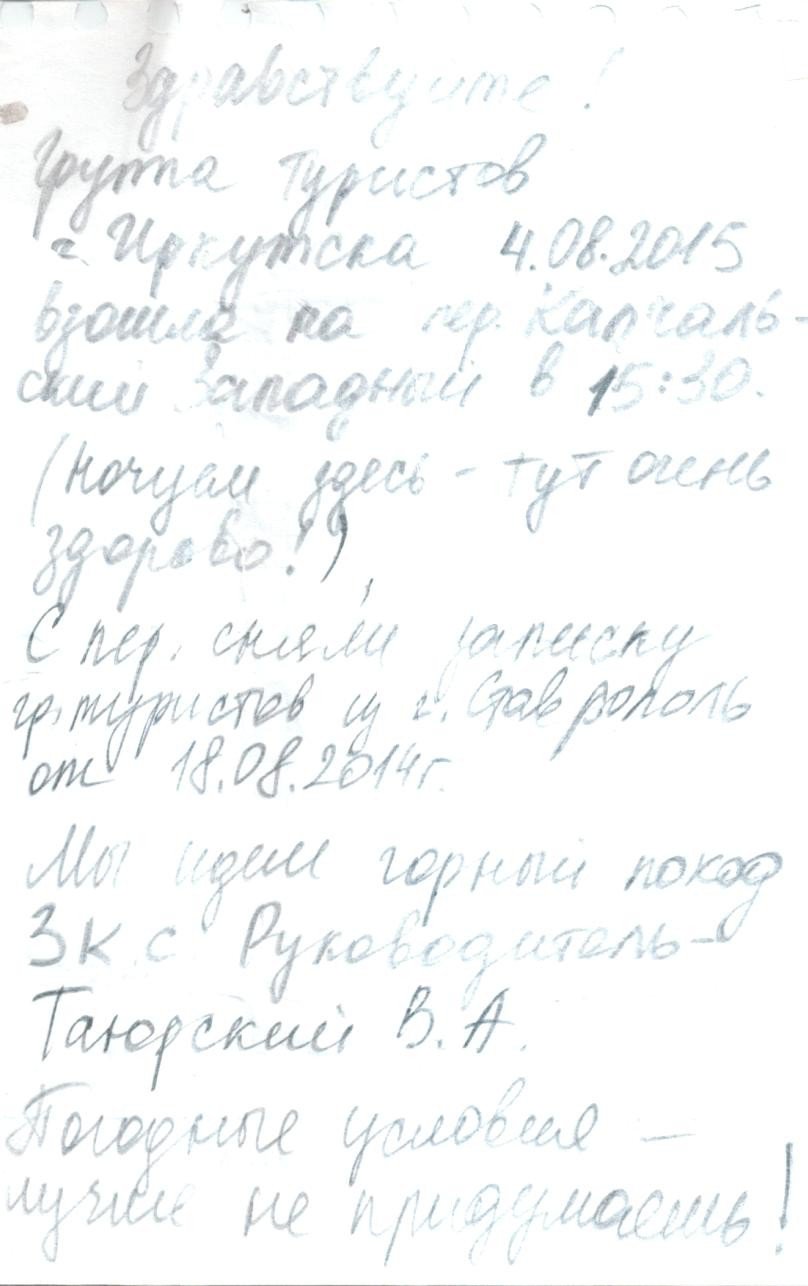 Здравствуйте!
Группа туристов
г. Иркутска 4.08.2015
взошла на пер. Капчаль-
ский Западный в 15:30.
(Ночуем здесь - тут очень
здорово!)
С пер. сняли записку
гр. туристов из г. Ставрополь
от 18.08.2014г.
Мы идем горный поход
3 к.с. Руководитель-
Таюрский В.А.
Погодные условия —
лучше не придумаешь!